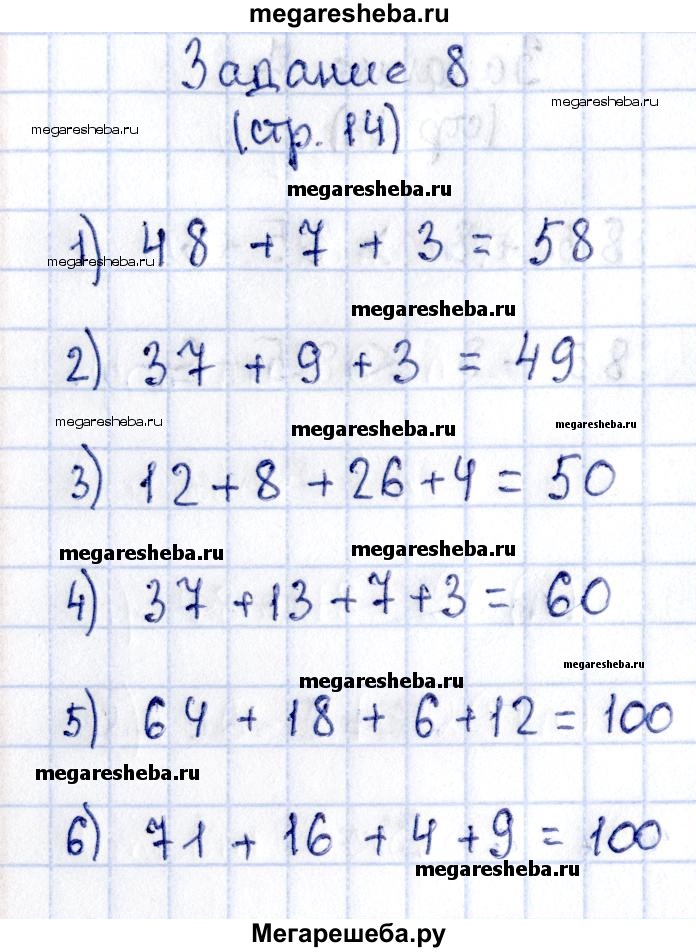 megaresheba.ru
Задание 8
megaresheba.ru
megaresheba.ru
(стр. 14)
megaresheba.ru
1) 48 + 7 + 3 = 58
megaresheba.ru
megaresheba.ru
2) 37 + 9 + 3 = 49
megaresheba.ru
megaresheba.ru
megaresheba.ru
3) 12 + 8 + 26 + 4 = 50
megaresheba.ru
megaresheba.ru
4) 37 + 13 + 7 + 3 = 60
megaresheba.ru
megaresheba.ru
5) 64 + 18 + 6 + 12 = 100
megaresheba.ru
6) 71 + 16 + 4 + 9 = 100
megaresheba.ru
Мегарешеба.ру